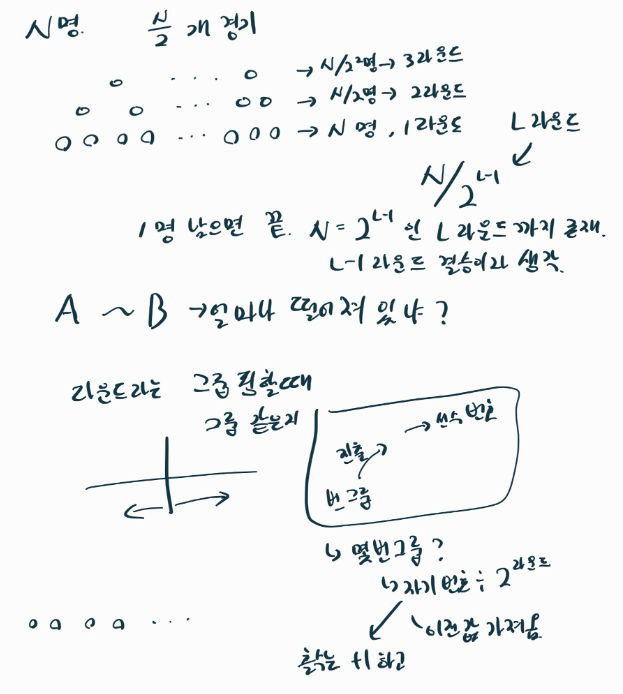 N명. N/2 개 경기
→ N/2²명 → 3라운드
→ N/2명 → 2라운드
→ N 명, 1라운드
L 라운드
N/2^(L-1)
1명 남으면 끝. N = 2^(L-1) 인 L 라운드까지 존재.
L-1 라운드 결승이라 생각.
A ~ B → 얼마나 떨어져 있냐?
라운드라는 그룹핑할때
그룹 같은지
→ 선수 번호
진출
번 그룹
↳ 몇번그룹?
↳ 자기 번호 ÷ 2^라운드
이전값 가져옴
홀수는 +1 하고